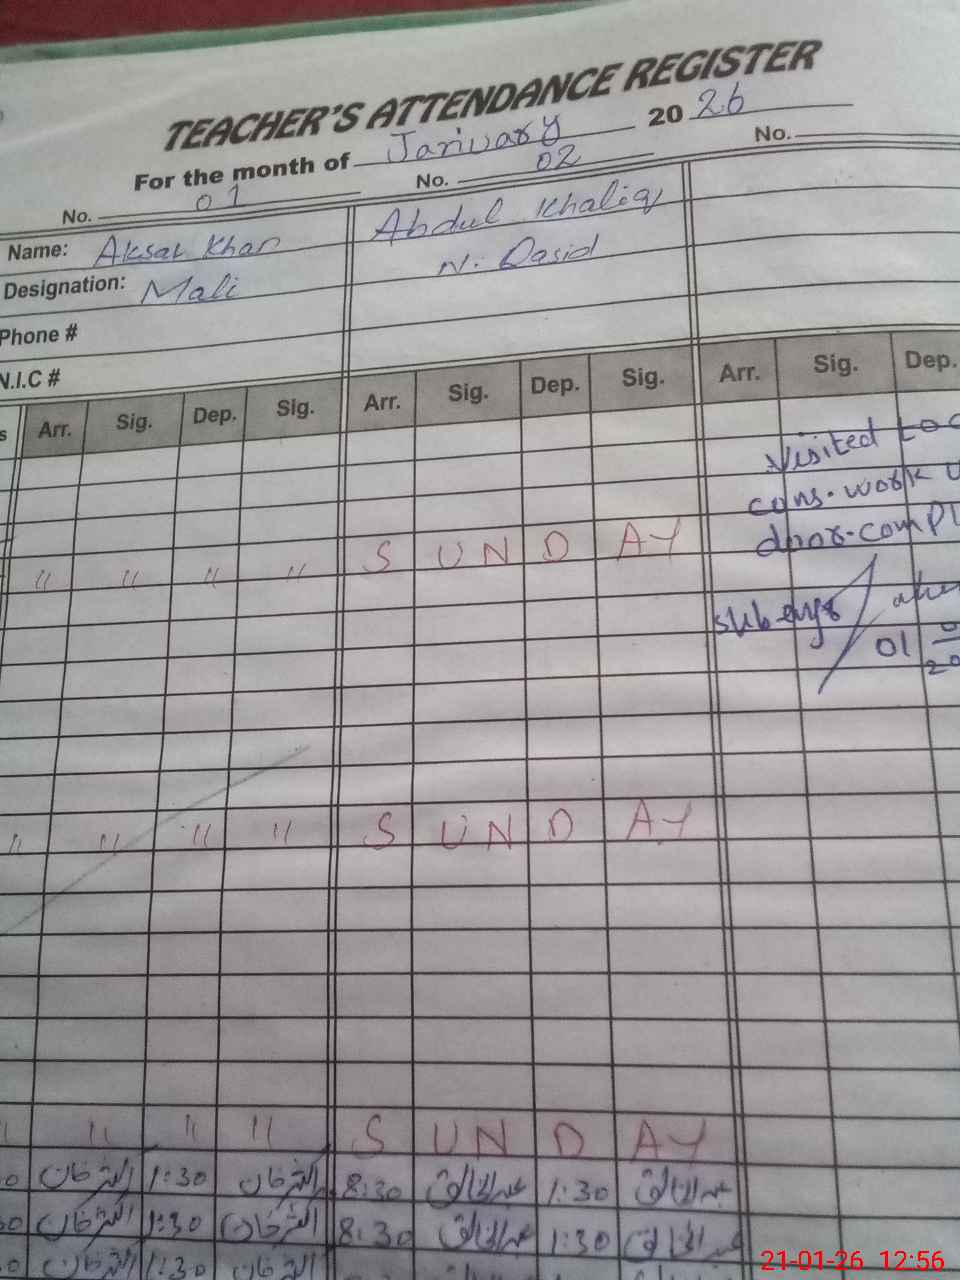 TEACHER'S ATTENDANCE REGISTER
For the month of January 2026
No. 01 No. 02 No.
Name: Aksar Khan Abdul Khaliq
Designation: Mali N. Qasid
Phone #
N.I.C #
Arr. Sig. Dep. Sig. Arr. Sig. Dep. Sig. Arr. Sig. Dep.
Visited
cons. work
door. compl
" " " " S U N D A Y
sub engr
01
20
" " " " S U N D A Y
" " " " S U N D A Y
1:30 8:30 عبدالخالق 1:30 عبدالخالق
1:30 8:30 عبدالخالق 1:30 عبدالخالق
21-01-26 12:56